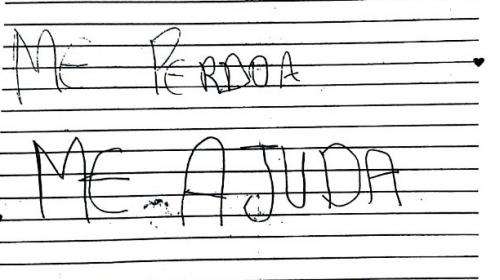 ME PERDOA
ME AJUDA